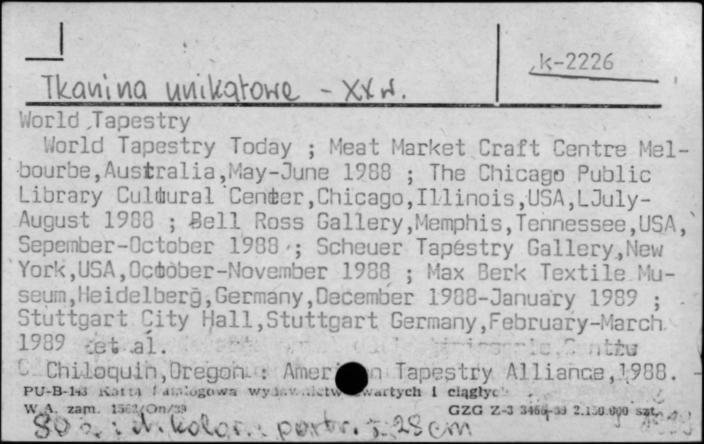 k-2226
Tkanina unikatowe - XX w.
World Tapestry
World Tapestry Today ; Meat Market Craft Centre Mel-
bourbe,Australia,May-June 1988 ; The Chicago Public
Library Culdural Center,Chicago,Illinois,USA,LJuly-
August 1988 ; Bell Ross Gallery,Memphis,Tennessee,USA,
Sepember-October 1988 ; Scheuer Tapestry Gallery,New
York,USA,October-November 1988 ; Max Berk Textile Mu-
seum,Heidelberg,Germany,December 1988-January 1989 ;
Stuttgart City Hall,Stuttgart Germany,February-March
1989 et al.
Chiloquin,Oregon : American Tapestry Alliance,1988. -
PU-B-143 Karta katalogowa wydawnictw zwartych i ciągłych
W.A. zam. GZG Z-3 2.150.000 szt.
80 s. : il. kolor., portr. ; 28 cm